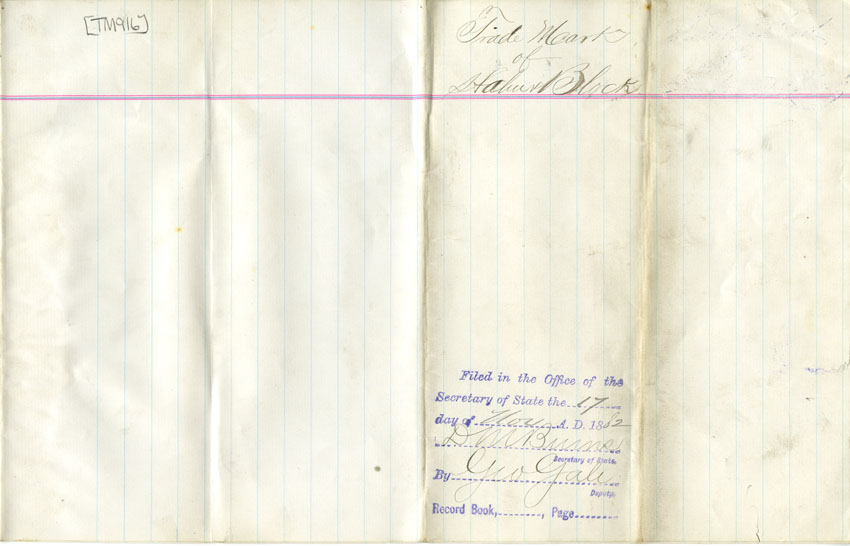 [TM916]
Trade Mark
of
& Block
Filed in the Office of the
Secretary of State the 17
day of Nov A. D. 1882
D M Burns
Secretary of State.
By Geo Gale
Deputy.
Record Book, ........, Page........